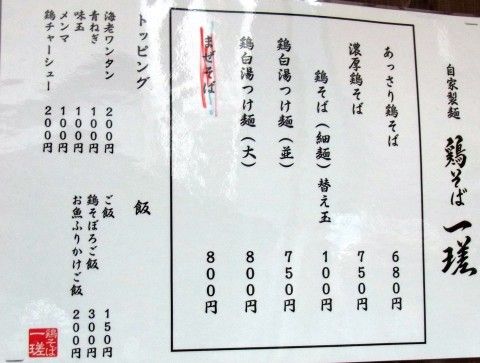 自家製麺 鶏そば 一瑳
あっさり鶏そば 680円
濃厚鶏そば 750円
鶏そば(細麺)替え玉 100円
鶏白湯つけ麺(並) 750円
鶏白湯つけ麺(大) 800円
まぜそば 800円
トッピング
海老ワンタン 200円
青ねぎ 100円
味玉 100円
メンマ 100円
鶏チャーシュー 200円
飯
ご飯 150円
鶏そぼろご飯 300円
お魚ふりかけご飯 200円
鶏そば
一瑳